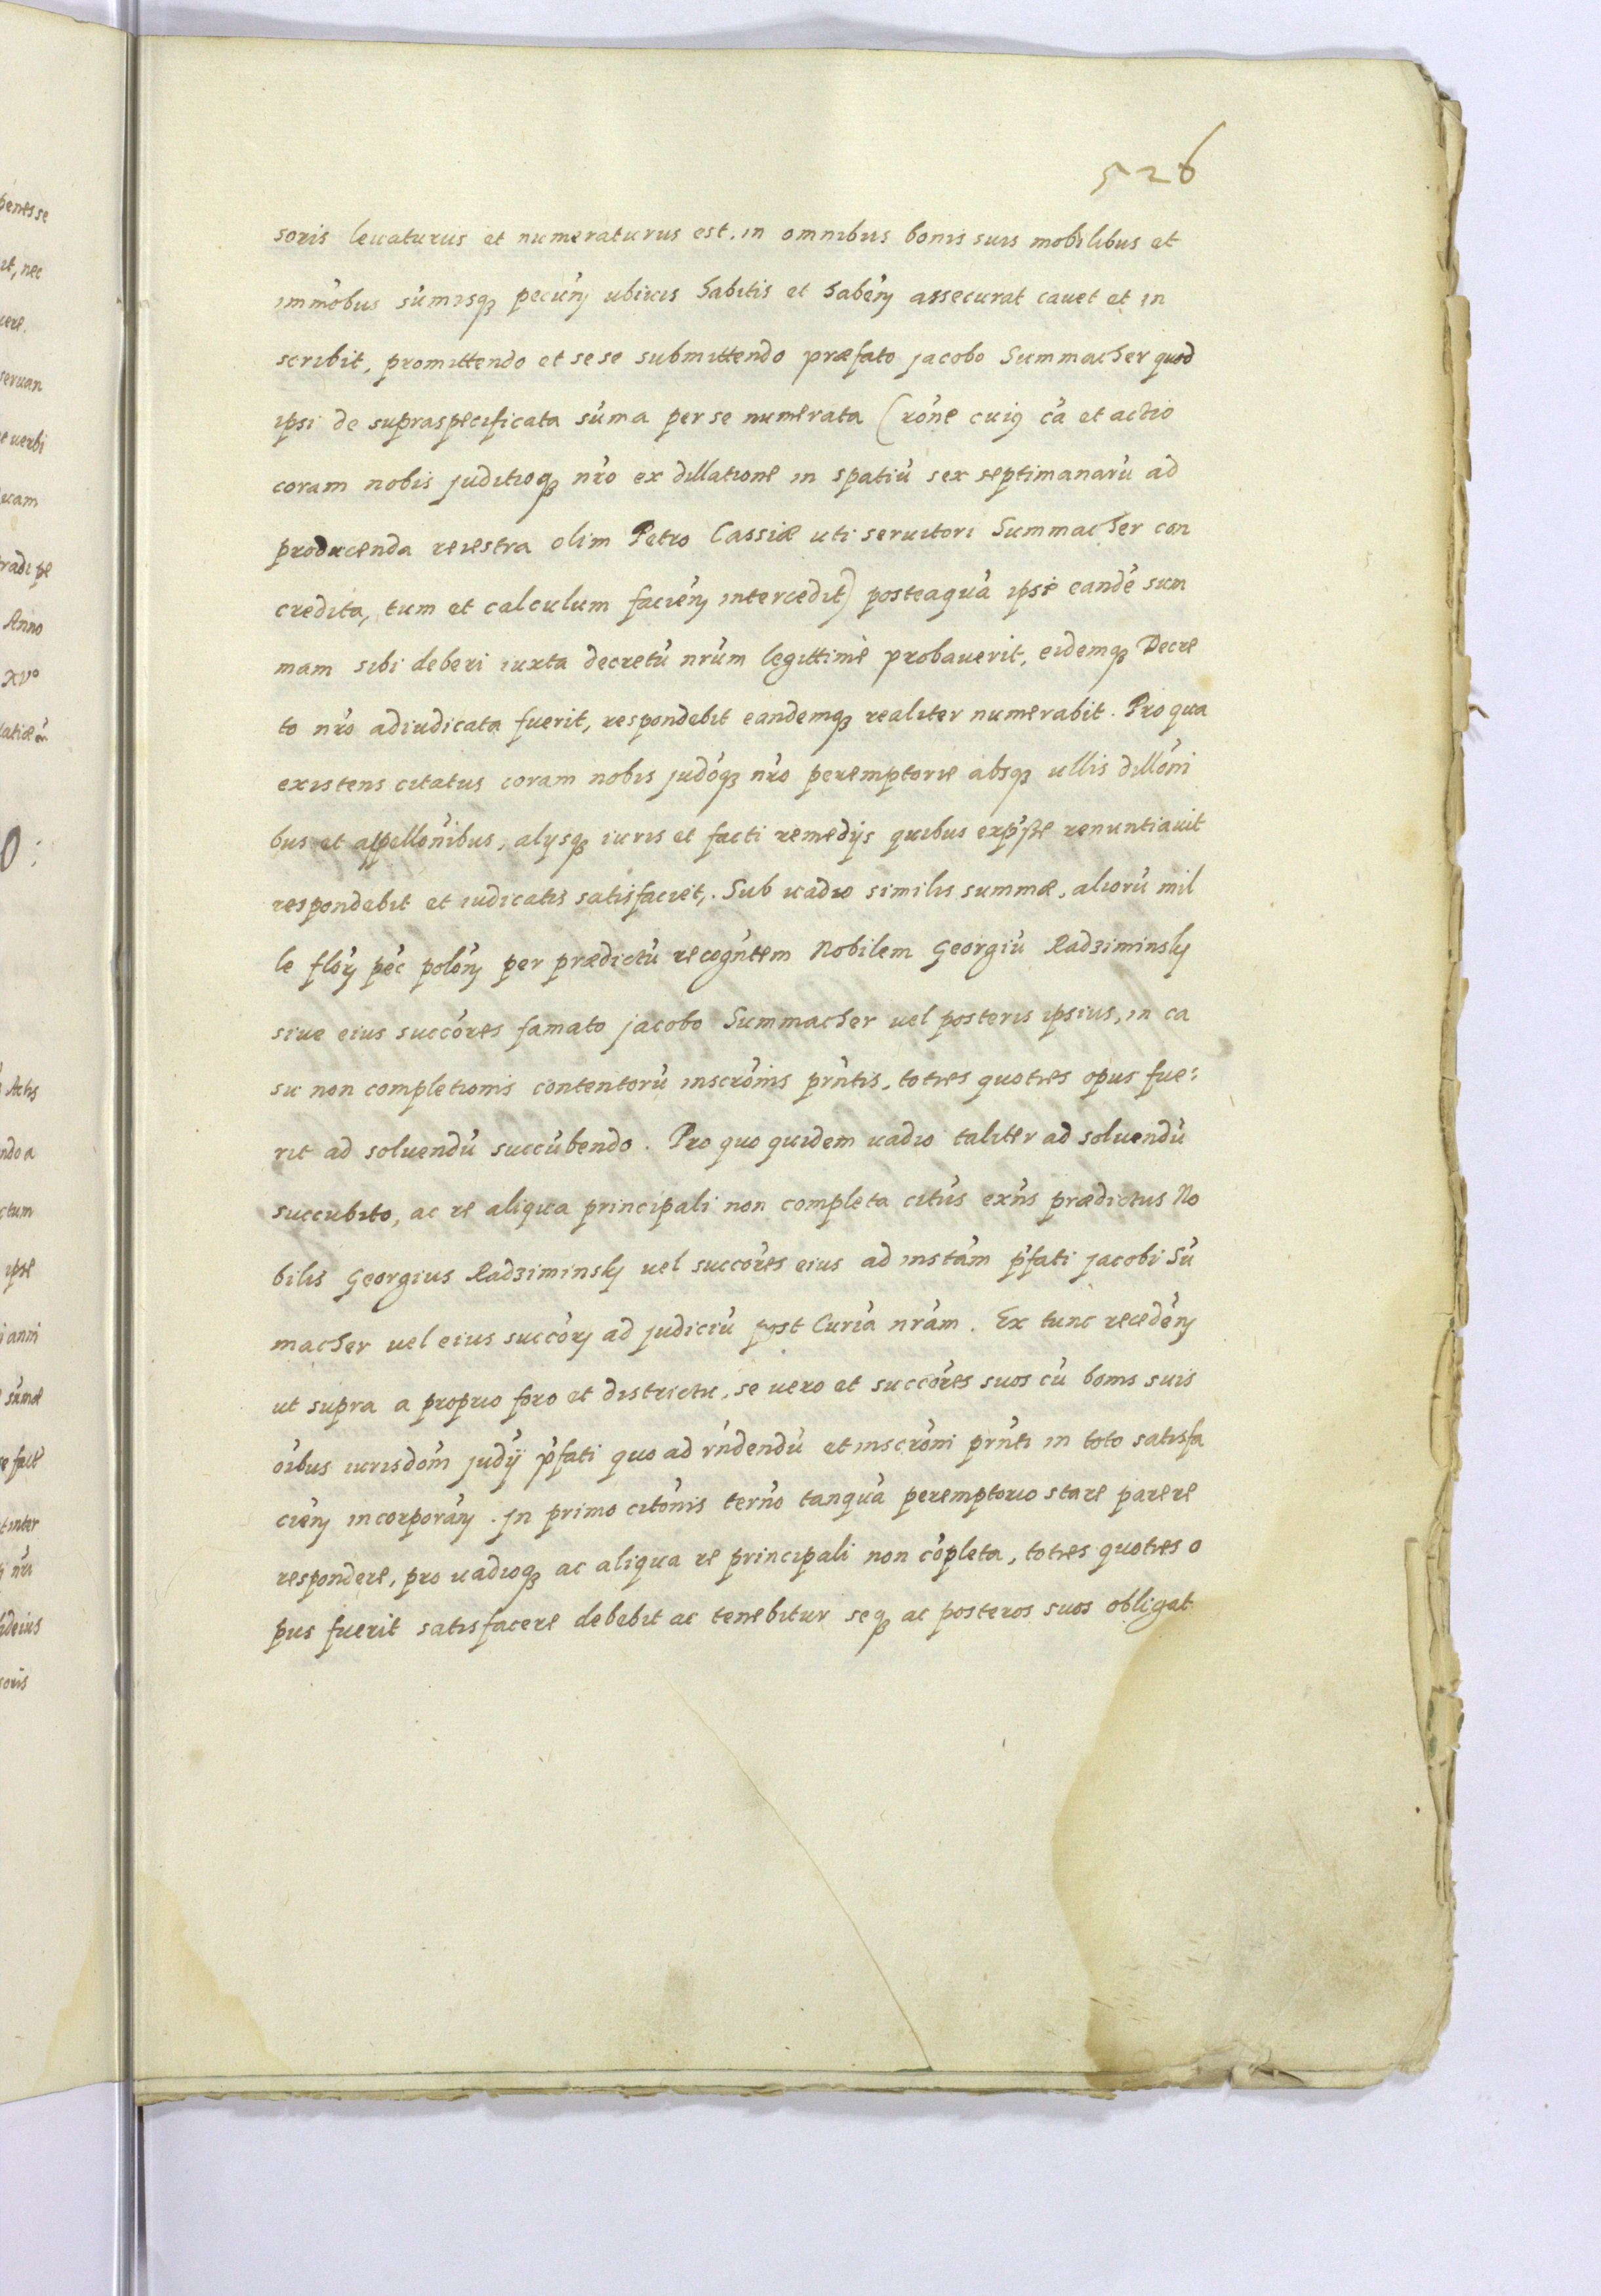 526
soris leuaturus et numeraturus est, in omnibus bonis suis mobilibus et
immo᷃bus su᷃misq3 pecun᷃ ubiuis habitis et haben᷃ assecurat cauet et in
scribit, promittendo et sese submittendo præfato jacobo Summacher quod
ipsi de supraspecificata su᷃ma per se numerata (ro᷃ne cuiꝰ ca᷃ et actio
coram nobis juditioq3 nr᷃o ex dillatione in spatiu᷃ sex septimanaru᷃ ad
producenda reiestra olim Petro Cassiæ uti seruitori Summacher con
credita, tum et calculum facien᷃ intercedit) posteaqua᷃ ipse eande᷃ sum
mam sibi deberi iuxta decretu᷃ nr᷃um legittimè probauerit, eidemq3 Decre
to nr᷃o adiudicata fuerit, respondebit eandemq3 realiter numerabit. Pro qua
existens citatus coram nobis judo᷃q3 nr᷃o peremptorie absq3 ullis dillo᷃ni
bus et appello᷃nibus, alijsq3 iuris et facti remedijs quibus exp᷃sse renuntiauit
respondebit et iudicatis satisfaciet,. Sub uadio similis summæ, alioru᷃ mil
le flor᷃ pec᷃ polon᷃ per prædictu᷃ recogn᷃tem Nobilem Georgiu᷃ Radziminsky
siue eius succo᷃res famato jacobo Summacher uel posteris ipsius, in ca
su non completionis contentoru᷃ inscro᷃nis prn᷃tis, toties quoties opus fue:
rit ad soluendu᷃ succu᷃bendo. Pro quo quidem uadio taliter ad soluendu᷃
succubito, ac re aliqua principali non completa citu᷃s exn᷃s prædictus No
bilis Georgius Radziminsky uel succo᷃res eius ad insta᷃m p᷃fati jacobi Su᷃
macher uel eius succor᷃ ad judiciu᷃ post Curia᷃ nr᷃am. Ex tunc receden᷃
ut supra a proprio foro et districtu, se uero et succo᷃res suos cu᷃ bonis suis
oi᷃bus iurisdom᷃ judy᷃ p᷃fati quo ad rn᷃dendu᷃ et inscro᷃ni prn᷃ti in toto satisfa
cien᷃ incorporan᷃. Jn primo cito᷃nis tern᷃o tanqua᷃ peremptorio stare parere
respondere, pro uadioq3 ac aliqua re principali non co᷃pleta, toties quoties o
pus fuerit satisfacere debebit ac tenebitur seq3 ac posteros suos obligat